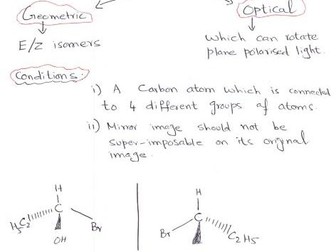 Geometric
Optical
E/Z isomers
which can rotate
plane polarised light.
Conditions:
i) A Carbon atom which is connected
to 4 different groups of atoms.
ii) Mirror image should not be
super-imposable on its original
image.
H
H
C
C
H5C2
Br
Br
C2H5
OH